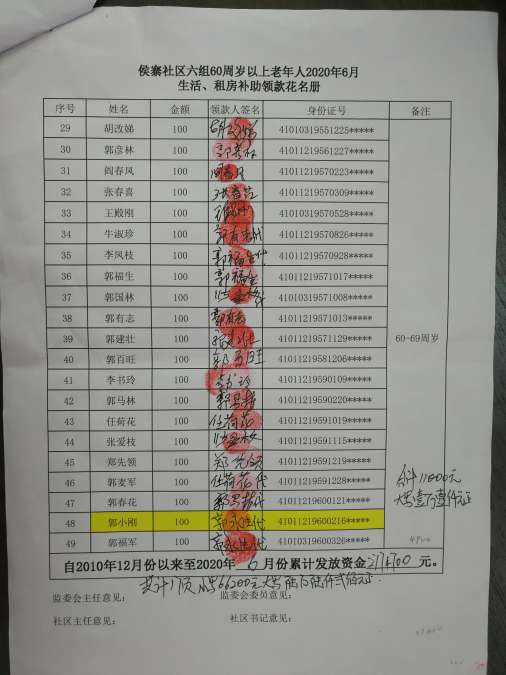 侯寨社区六组60周岁以上老年人2020年6月
生活、租房补助领款花名册
序号 姓名 金额 领款人签名 身份证号 备注
29 胡改娣 100 41010319551225*****
30 郭彦林 100 郭彦林 41011219561227*****
31 阎春风 100 41011219570223*****
32 张春喜 100 41011219570309*****
33 王殿刚 100 41010319570528*****
34 牛淑珍 100 41011219570826*****
35 李凤枝 100 郭福生代 41011219570928*****
36 郭福生 100 郭福生 41011219571017*****
37 郭国林 100 41010319571008*****
38 郭有志 100 郭有志 41011219571013*****
39 郭建壮 100 41011219571129***** 60-69周岁
40 郭百旺 100 郭百旺 41011219581206*****
41 李书玲 100 李书玲 41011219590109*****
42 郭马林 100 41011219590220*****
43 任荷花 100 任荷花 41011219591019*****
44 张爱枝 100 41011219591115*****
45 郑先领 100 郑先领 41011219591219*****
46 郭麦军 100 任荷花代 41011219591228*****
47 郭春花 100 41011219600121*****
48 郭小刚 100 41011219600216*****
49 郭福军 100 41011219600326*****
合计11000元
自2010年12月份以来至2020年 6 月份累计发放资金 元。
监委会主任意见： 监委会委员意见：
社区主任意见： 社区书记意见：